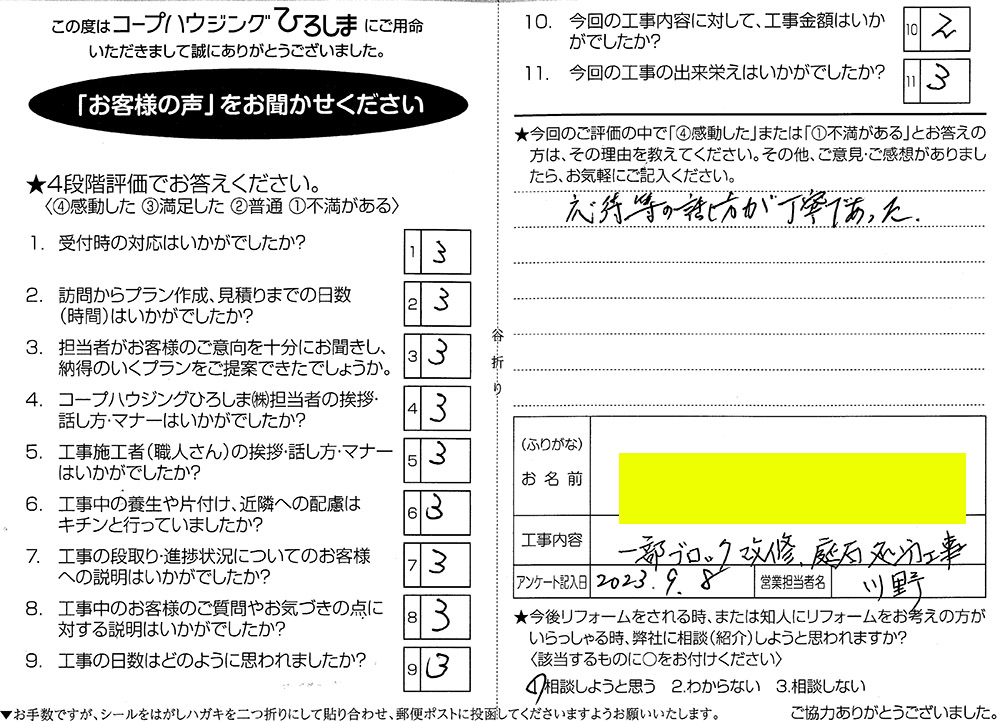 この度はコープハウジングひろしまにご用命
いただきまして誠にありがとうございました。
「お客様の声」をお聞かせください
★4段階評価でお答えください。
〈④感動した ③満足した ②普通 ①不満がある〉
1. 受付時の対応はいかがでしたか?
1 3
2. 訪問からプラン作成、見積りまでの日数
(時間)はいかがでしたか?
2 3
3. 担当者がお客様のご意向を十分にお聞きし、
納得のいくプランをご提案できたでしょうか。
3 3
4. コープハウジングひろしま㈱担当者の挨拶・
話し方・マナーはいかがでしたか?
4 3
5. 工事施工者(職人さん)の挨拶・話し方・マナー
はいかがでしたか?
5 3
6. 工事中の養生や片付け、近隣への配慮は
キチンと行っていましたか?
6 3
7. 工事の段取り・進捗状況についてのお客様
への説明はいかがでしたか?
7 3
8. 工事中のお客様のご質問やお気づきの点に
対する説明はいかがでしたか?
8 3
9. 工事の日数はどのように思われましたか?
9 3
谷折り
10. 今回の工事内容に対して、工事金額はいか
がでしたか?
10 2
11. 今回の工事の出来栄えはいかがでしたか?
11 3
★今回のご評価の中で「④感動した」または「①不満がある」とお答えの
方は、その理由を教えてください。その他、ご意見・ご感想がありまし
たら、お気軽にご記入ください。
応待等の話し方が丁寧であった.
(ふりがな)
お名前
工事内容
一部ブロック改修、庭石処分工事
アンケート記入日 2023.9.8 営業担当者名 川野
★今後リフォームをされる時、または知人にリフォームをお考えの方が
いらっしゃる時、弊社に相談(紹介)しようと思われますか?
〈該当するものに○をお付けください〉
1.相談しようと思う 2.わからない 3.相談しない
▼お手数ですが、シールをはがしハガキを二つ折りにして貼り合わせ、郵便ポストに投函してくださいますようお願いいたします。
ご協力ありがとうございました。